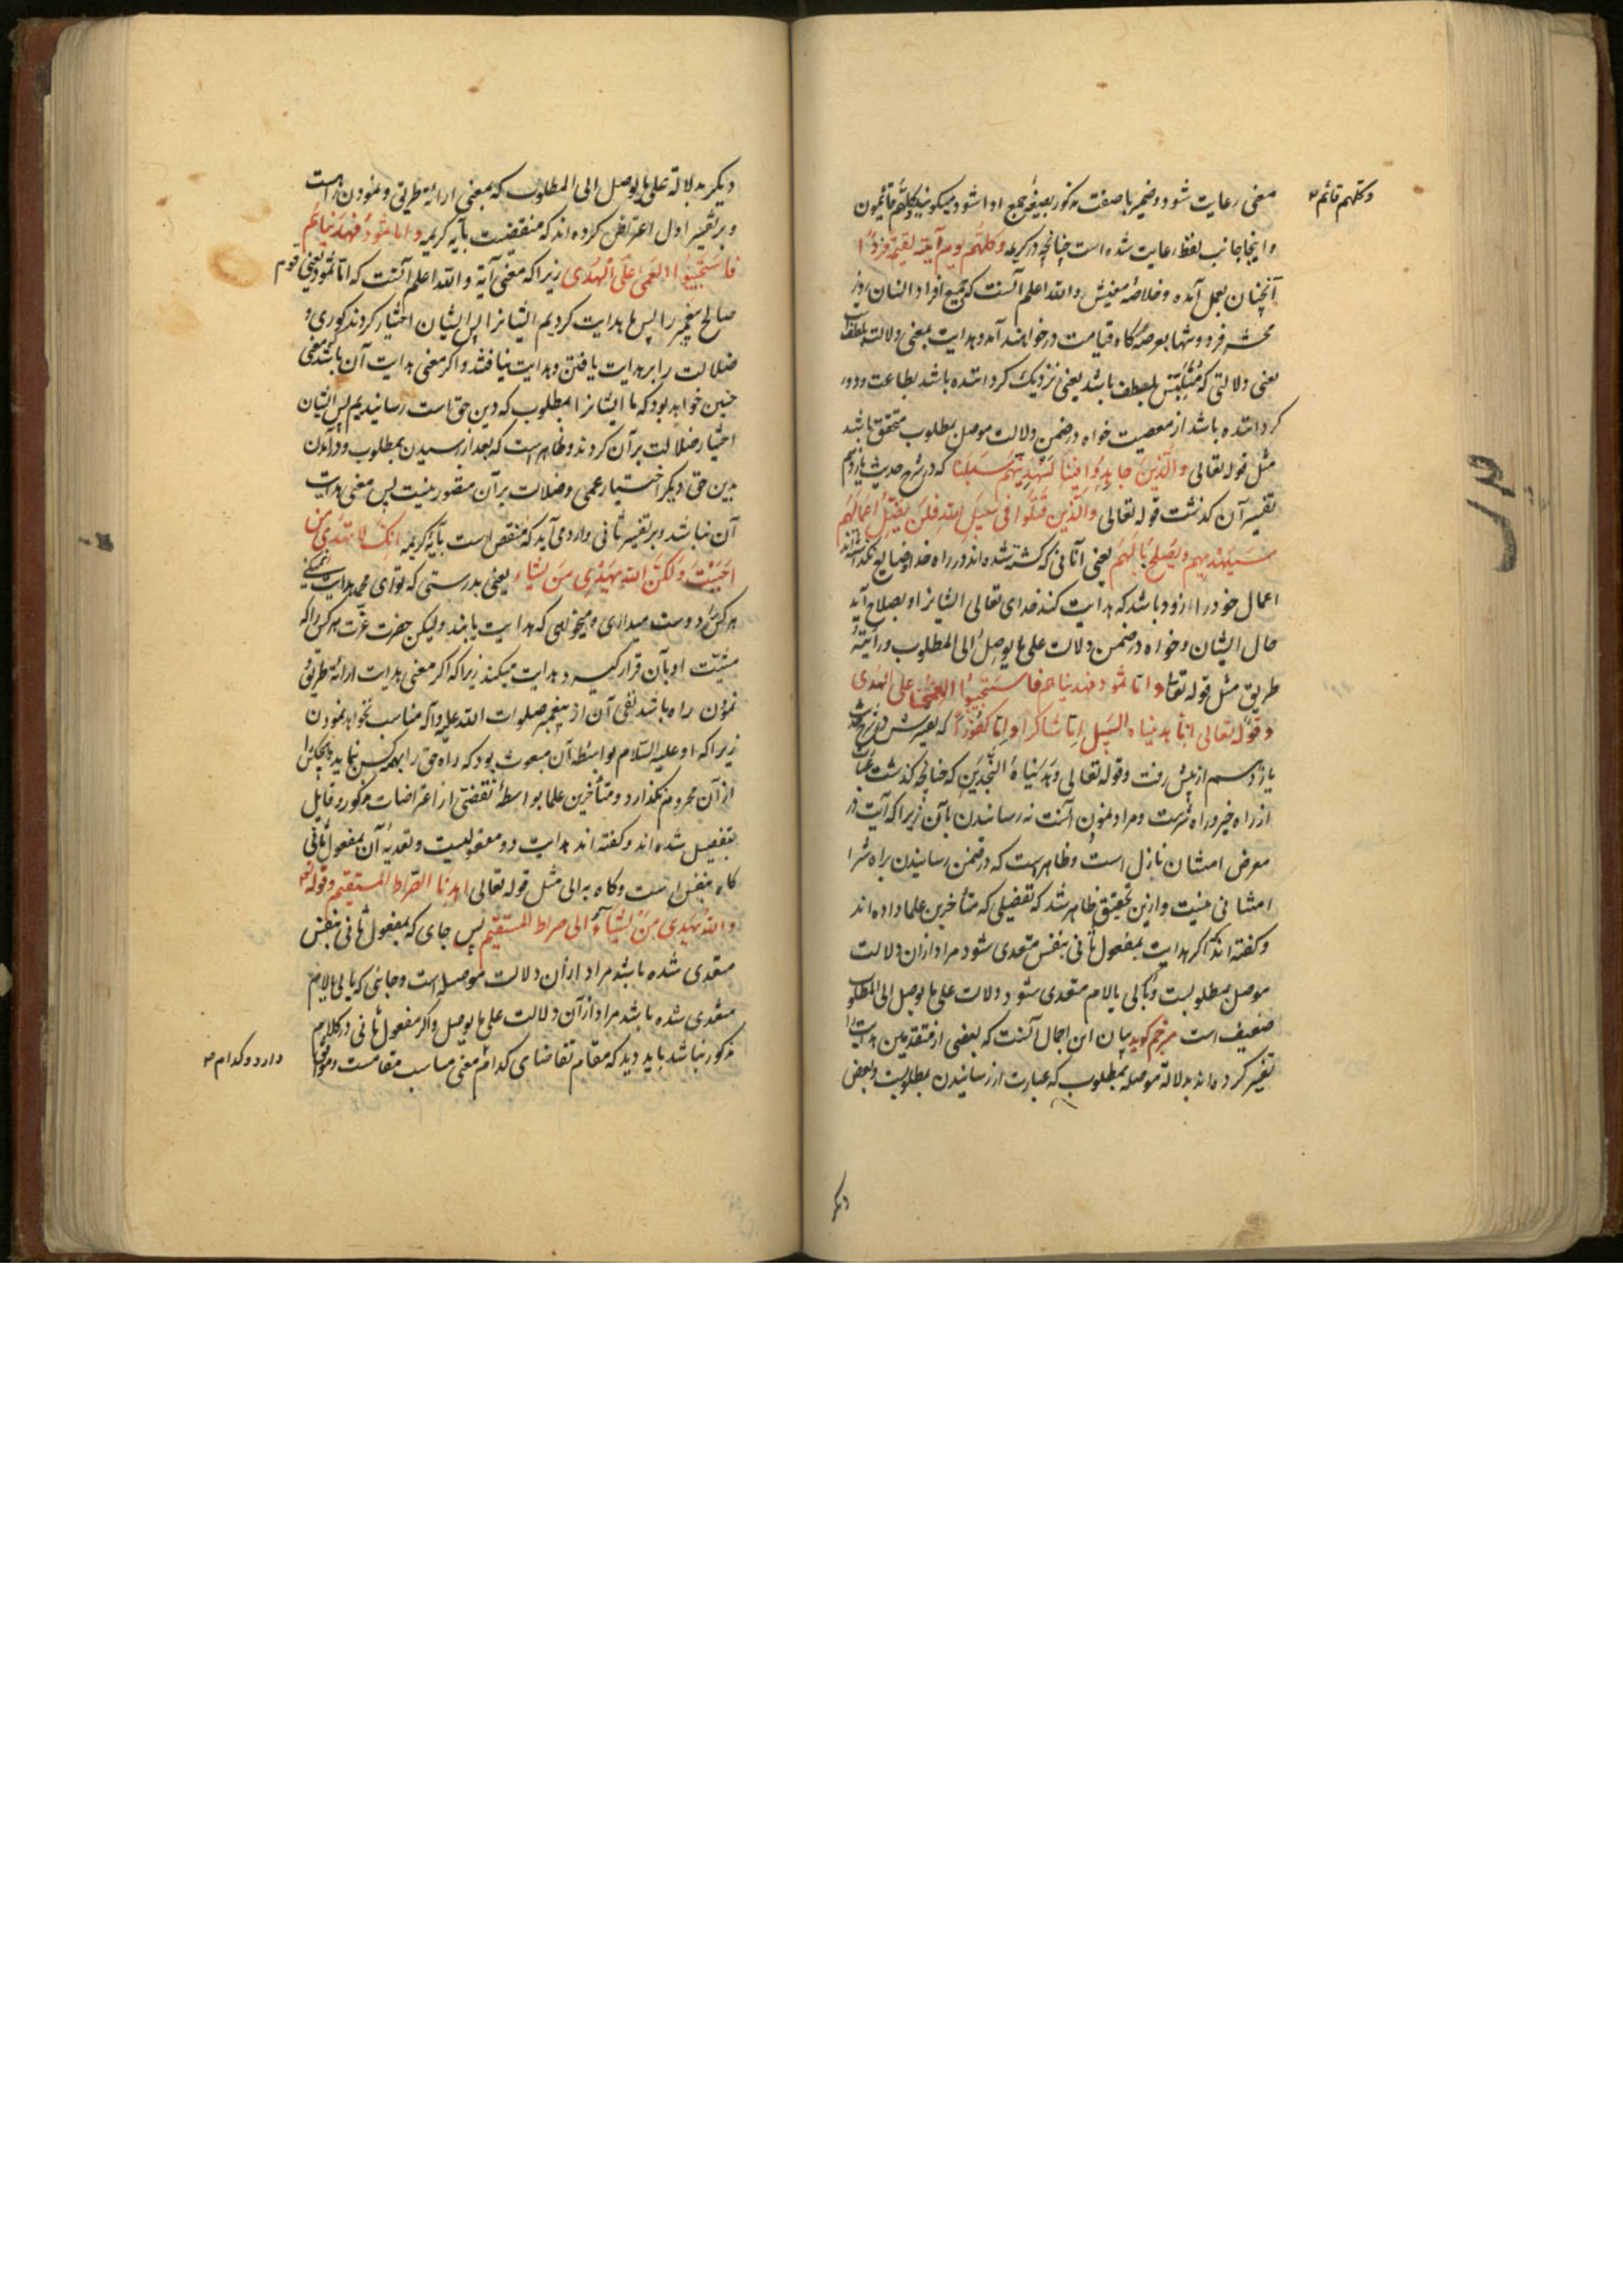 معنی رعایت شود و ضمیر یا صفت مذکور بصیغه جمع ادا شود و میگویند و کلهم قائمون
و کلهم قائم
و اینجا جانب لفظ رعایت شده است چنانچه در کریمه و کلهم یوم آتیه القیمة فردا
آنچنان بعمل آمده و خلاصه معنیش و الله اعلم آنست که جمیع افراد انسان روز
محشر فرد و تنها بعرصه گاه قیامت در خواهند آمد و هدایت بمعنی دلالت بلطف است
یعنی دلالتی که متلبس بلطف باشد یعنی نزدیک گرداننده باشد بطاعت و دور
گرداننده باشد از معصیت خواه در ضمن دلالت موصل بمطلوب متحقق باشد
مثل قوله تعالی والذین جاهدوا فینا لنهدینهم سبلنا که در شرح حدیث یازدهم
تفسیر آن گذشت قوله تعالی والذین قتلوا فی سبیل الله فلن یضل اعمالهم
سیهدیهم و یصلح بالهم یعنی آنانی که کشته شده اند در راه خدا ضایع نگذاشته اند
اعمال خود را زود باشد که هدایت کند خدای تعالی ایشانرا و بصلاح آید
حال ایشان و خواه در ضمن دلالت علی ما یوصل الی المطلوب و رائیة
طریق مثل قوله تعالی و اما ثمود فهدیناهم فاستحبوا العمی علی الهدی
و قوله تعالی انا هدیناه السبیل اما شاکرا و اما کفورا که تفسیرش در شرح حدیث
یازدهم ازپیش رفت و قوله تعالی و هدیناه النجدین که چنانچه گذشت عبارت
از راه خیر و راه شرست و مراد نمودن آنست نه رسانیدن بآن زیرا که آیت در
معرض امتنان نازل است و ظاهرست که در ضمن رسانیدن براه شر
امتنانی نیست و ازین تحقیق ظاهر شد که تفصیلی که متأخرین علما داده اند
و گفته اند که اگر هدایت بمفعول ثانی بنفس متعدی شود مراد ازان دلالت
موصل بمطلوبست و بالی یا لام متعدی شود دلالت علی ما یوصل الی المطلوب
ضعیف است مترجم گوید بیان این اجمال آنست که بعضی از متقدمین هدایت را
تفسیر کرده اند بدلالة موصله بمطلوب که عبارت از رسانیدن بمطلوبست و بعض
دیگر
دیگر بدلالة علی ما یوصل الی المطلوب که بمعنی ارائة طریق و نمودن راهست
و بر تفسیر اول اعتراض کرده اند که منقضست بآیه کریمه و اما ثمود فهدیناهم
فاستحبوا العمی علی الهدی زیرا که معنی آیة و الله اعلم آنست که اما ثمود یعنی قوم
صالح پیغمبر را پس ما هدایت کردیم ایشانرا پس ایشان اختیار کردند کوری و
ضلالت را بر هدایت یافتن و هدایت نیافتند و اگر معنی هدایت آن باشد معنی
چنین خواهد بود که ما ایشانرا بمطلوب که دین حق است رسانیدیم پس ایشان
اختیار ضلالت بر آن کردند و ظاهرست که بعد از رسیدن بمطلوب و در آمدن
بدین حق دیگر اختیار عمی و ضلالت بر آن متصور نیست پس معنی هدایت
آن نباشد و بر تفسیر ثانی وارد می آید که منقض است بآیة کریمه انک لا تهدی من
احببت و لکن الله یهدی من یشاء یعنی بدرستی که تو ای محمد هدایت نمیکنی
هر کس را دوست میداری و میخواهی که هدایت یابند ولیکن حضرت عزت هر کس را که
مشیت او بآن قرار گیرد هدایت میکند زیرا که اگر معنی هدایت ارائة طریق و
نمودن راه باشد نفی آن از پیغمبر صلوات الله علیه و آله مناسب نخواهد نمود
زیرا که او علیه السلام بواسطه آن مبعوث بود که راه حق را بهمه کس نماید و هیچکس را
از آن محروم نگذارد و متأخرین علما بواسطه تفصی از اعتراضات مذکور قایل
بتفصیل شده اند و گفته اند هدایت دو مفعولیست و تعدیه آن بمفعول ثانی
گاه بنفس است و گاه به الی مثل قوله تعالی اهدنا الصراط المستقیم و قوله تعالی
والله یهدی من یشآء الی صراط المستقیم پس جای که بمفعول ثانی بنفس
متعدی شده باشد مراد از آن دلالت موصله است و جائی که بالی یا لام
متعدی شده باشد مراد ازآن دلالت علی ما یوصل و اگر مفعول ثانی در کلام
مذکور نباشد باید دید که مقام تقاضای کدام معنی مناسب مقامست و موافق
دارد و کدام